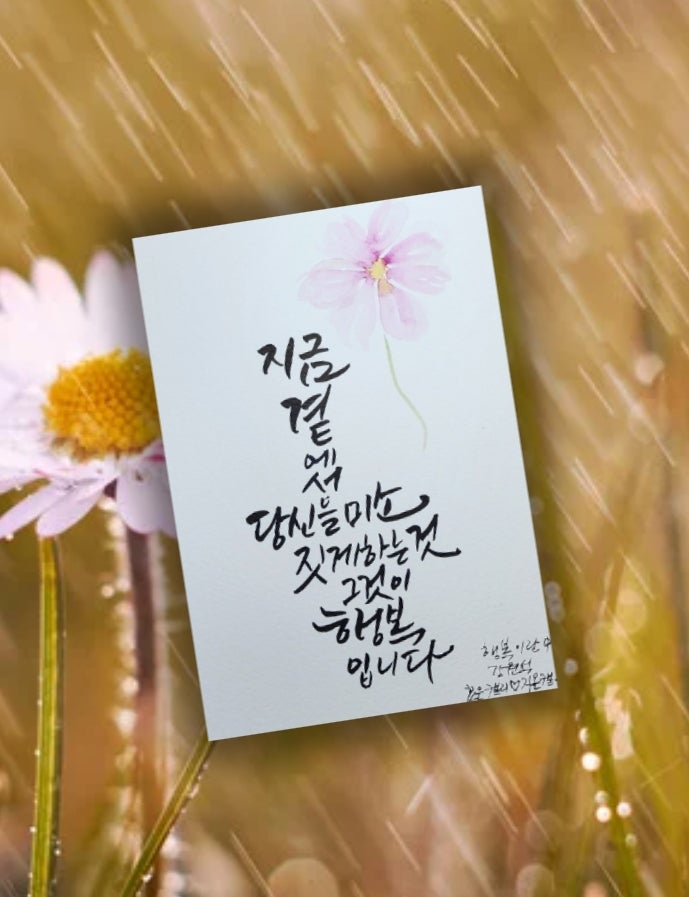 지금
곁
에서
당신을미소
짓게하는것
그것이
행복
입니다
행복이란
강원석